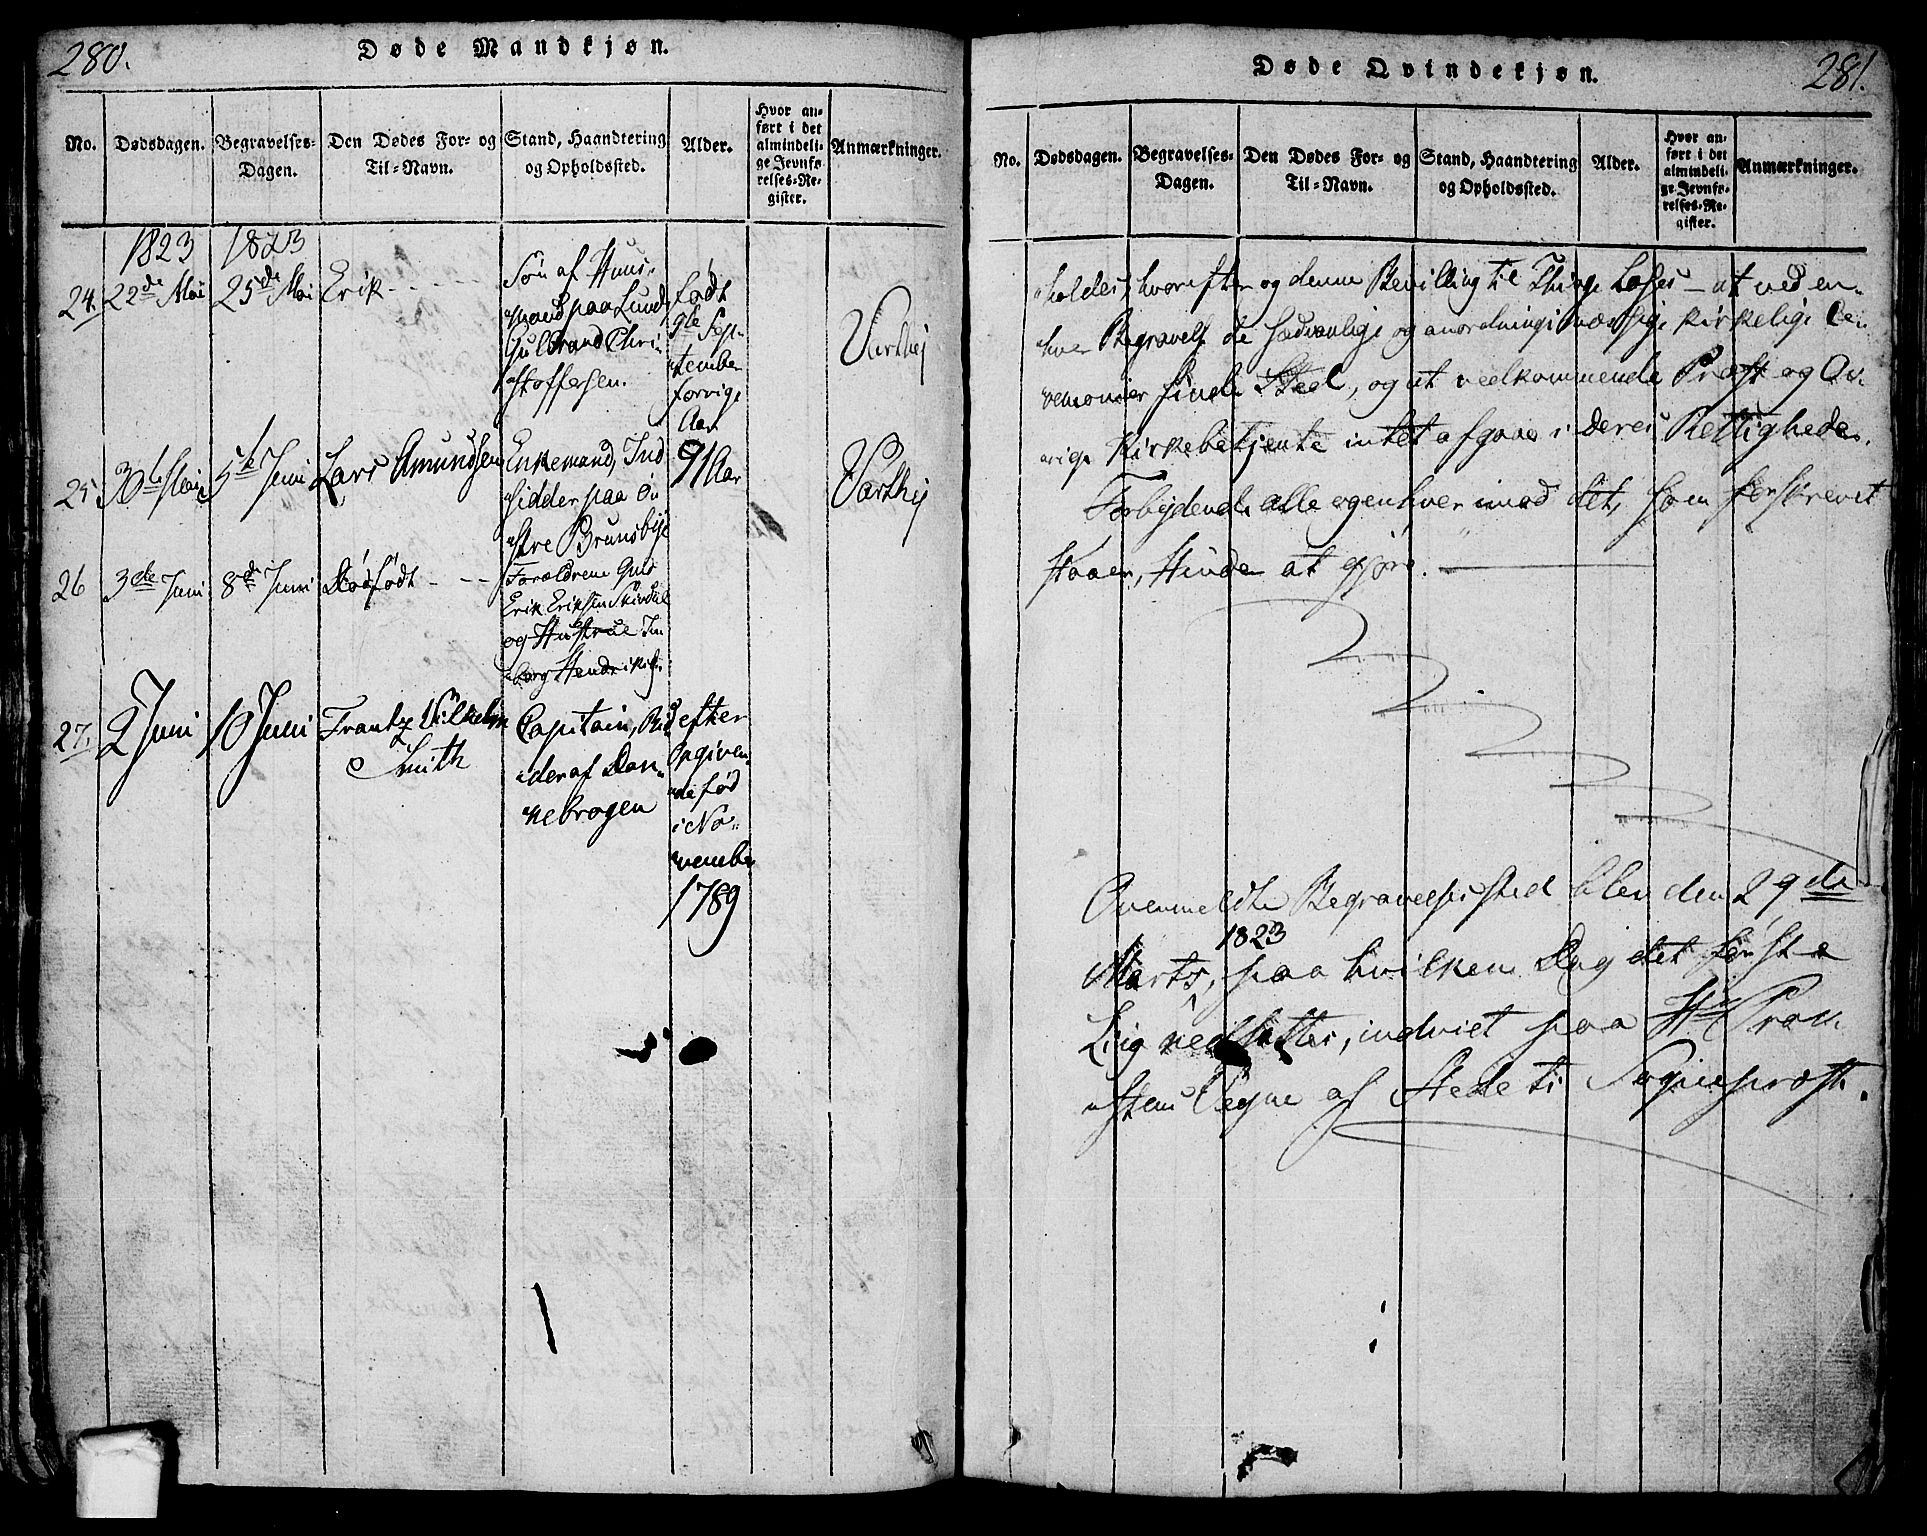 280.
Døde Mandkjøn.
No.
Dødsdagen.
Begravelses-
Dagen.
Den Dødes For- og
Til-Navn.
Stand, Haandtering
og Opholdssted.
Alder.
Hvor an-
ført i det
almindeli-
ge Jevnfø-
relses-Re-
gister.
Anmærkninger.
1823 1823
24. 22de Mai 25de Mai Erik
Søn af Huus-
mand paa Lund
Gulbrand Chri-
stoffersen.
født
9de Sep-
tember
forrige
Aar
25 30te Mai 5te Juni Lars Amundsen
Enkemand, Ind
sidder paa Øv
stre Brunsbye
91 Aar
26 3de Juni 8de Juni Dødfødt
Forældrene
Erik Eriksen
og Hustrue In
borg Hendriksd.
27. 2 Juni 10 Juni Frantz Vilhelm
Smith
Capitain, Rid
der af Dan-
nebrogen
efter
Opgiven-
de fød
i No-
vember
1789
281.
Døde Qvindekjøn.
No.
Dødsdagen.
Begravelses-
Dagen.
Den Dødes For- og
Til-Navn.
Stand, Haandtering
og Opholdssted.
Alder.
Hvor an-
ført i det
almindeli-
ge Jevnfø-
relses-Re-
gister.
Anmærkninger.
holdes, hvorefter og denne Bevilling til Thinge Læses - at ved en-
hver Begravelse de sædvanlige og anordningsmæssige kirkelige Ce-
remonier finde Sted, og at vedkommende Præst og Øv-
rige Kirkebetjente intet afgaaer i deres Rettigheder.
Forbydende alle og enhver imod det, som forskrevet
staaer, Hinder at gjøre.
Ovenmeldte Begravelsessted blev den 29de
Marts, 1823 paa hvilken Dag det første
Liig nedsattes, indviet paa Hr Prov-
stens Vegne af Stedets Sognepræst.